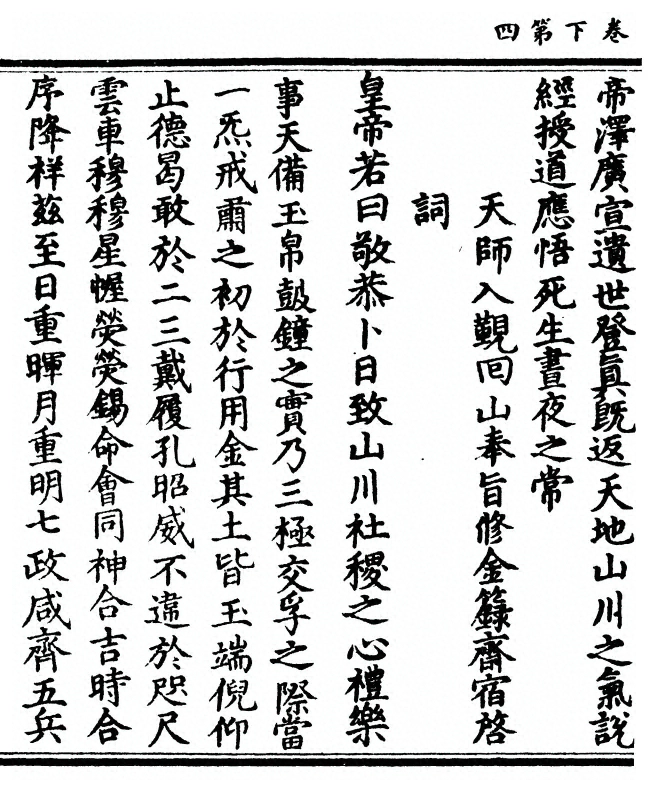 卷下第四
帝澤廣宣遺世登眞旣返天地山川之氣說
經授道應悟死生晝夜之常
天師入覲回山奉旨修金籙齋宿啓
詞
皇帝若曰敬恭卜日致山川社稷之心禮樂
事天備玉帛鼓鐘之實乃三極交孚之際當
一炁戒肅之初於行用金其土皆玉端倪仰
止德曷敢於二三戴履孔昭威不違於咫尺
雲車穆穆星幄熒熒錫命會同神合吉時合
序降祥茲至日重暉月重明七政咸齊五兵